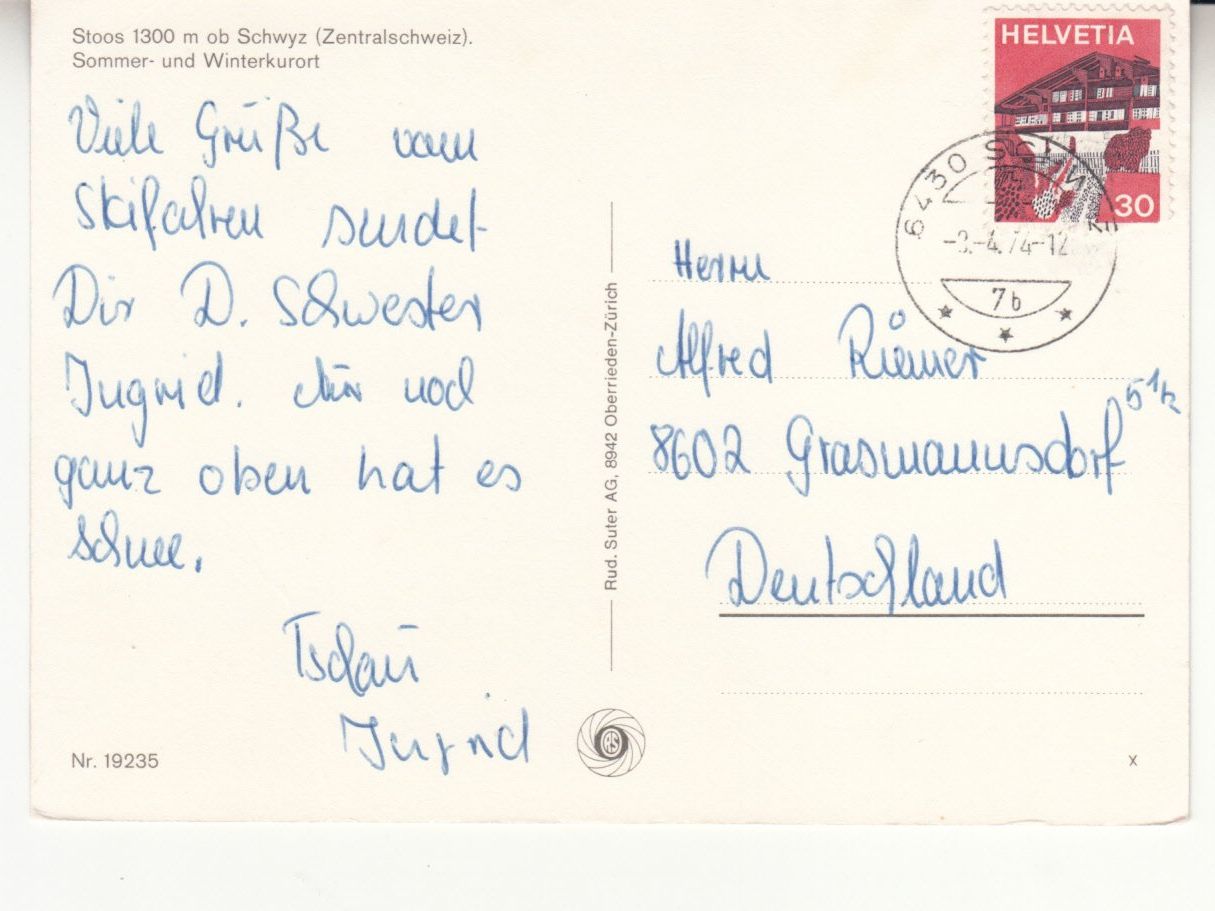 Stoos 1300 m ob Schwyz (Zentralschweiz).
Sommer- und Winterkurort
Viele Grüße vom
Skifahren sendet
Dir D. Schwester
Ingrid. Nur noch
ganz oben hat es
Schnee.
Tschau
Ingrid
Nr. 19235
Rud. Suter AG, 8942 Oberrieden-Zürich
HELVETIA
30
6430 SCHWYZ
-4.74-12
7b
Herrn
Alfred Riemer
8602 Grasmannsdorf 51½
Deutschland
x